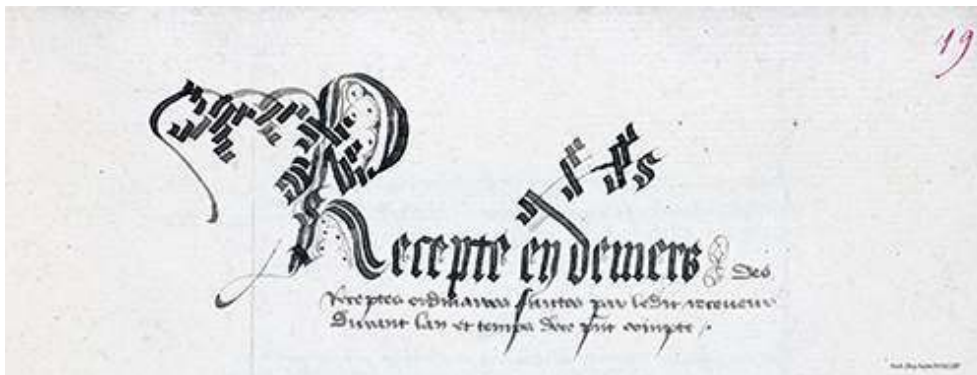 19
Recepte en deniers des
Receptes ordinaires faictes par ledit receveur
Durant lan et temps de ce put compte